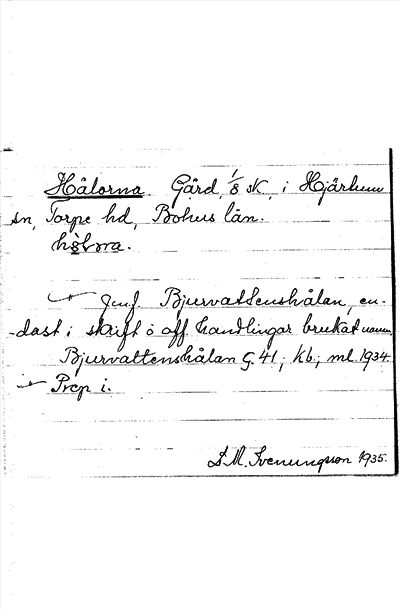 Hålorna Gård, 1/8 sk, i Hjärtum
sn, Torpe hd, Bohus län.
Jmf. Bjurvattenshålan, en-
-dast i skrift o. off. handlingar brukat namn
Bjurvattenshålan G. 41; kb; ml. 1934
Prep i.
S.M. Svenungsson 1935.